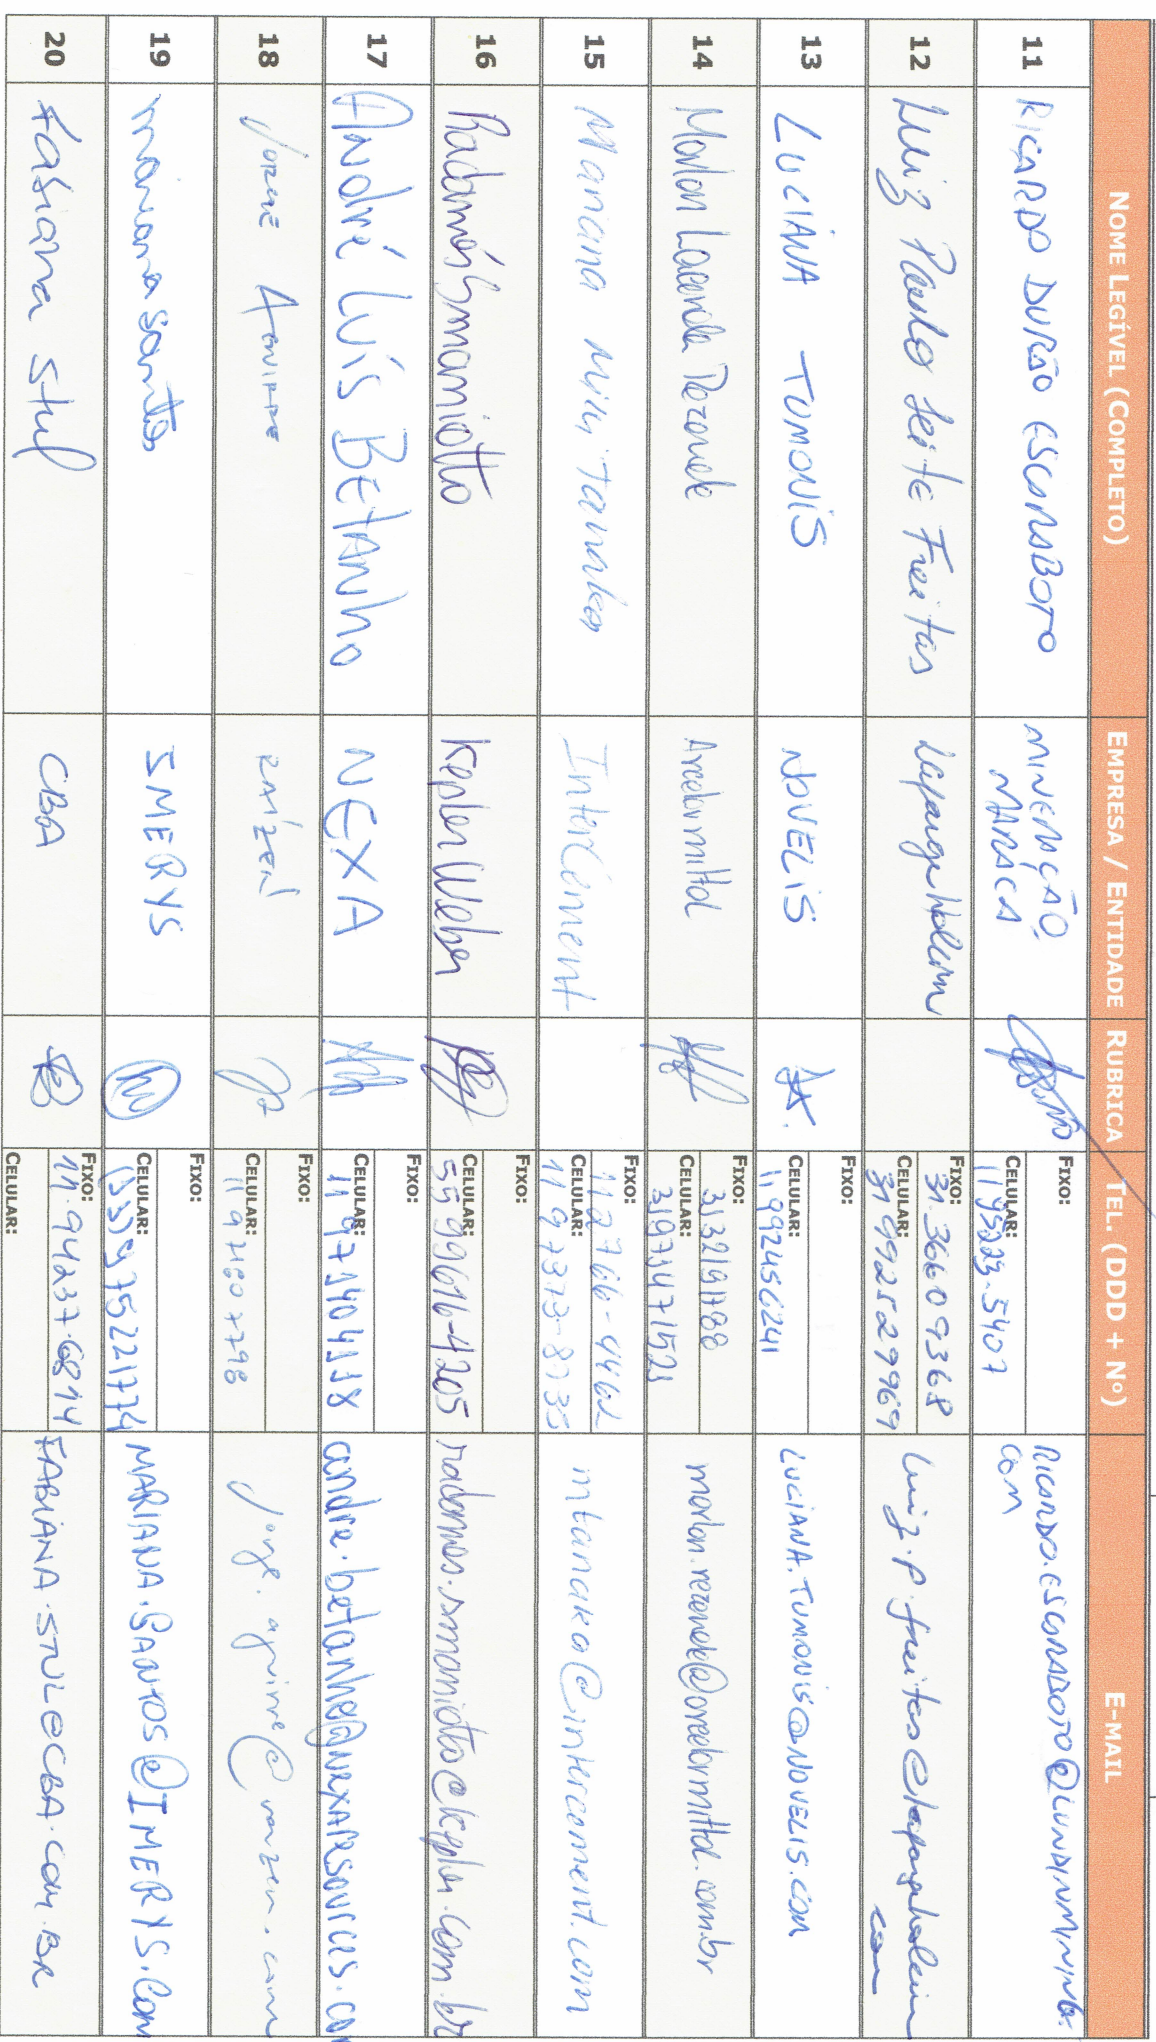 NOME LEGÍVEL (COMPLETO) EMPRESA / ENTIDADE RUBRICA TEL. (DDD + Nº) E-MAIL
11 RICARDO DURÃO ESCARABOTO MINERAÇÃO MARACA FIXO: CELULAR: RICARDO.ESCARABOTO@LUNDINMINING.COM
12 Luiz Paulo Leite Freitas LafargeHolcim FIXO: 31.36609368 CELULAR: 31992529969 luiz.p.freitas@lafargeholcim.com
13 LUCIANA TUMONIS NOVELIS FIXO: CELULAR: 11992456241 LUCIANA.TUMONIS@NOVELIS.COM
14 Marlon Lacerda Rezende Arcelormittal FIXO: 3132191788 CELULAR: 31973471521 marlon.rezende@arcelormittal.com.br
15 Mariana Miki Tanaka InterCement FIXO: CELULAR: mtanaka@intercement.com
16 Radamés Smaniotto Kepler Weber FIXO: CELULAR: 55 99616-4205 radames.smaniotto@kepler.com.br
17 André Luís BEtANho NEXA FIXO: CELULAR: andre.betanho@nexaresources.com
18 JORGE AGUIRRE RAÍZEN FIXO: CELULAR: jorge.aguirre@raizen.com
19 Mariana Santos IMERYS FIXO: CELULAR: (33)975221774 MARIANA.SANTOS@IMERYS.COM
20 Fabiana Stul CBA FIXO: 11.94237.6814 CELULAR: FABIANA.STUL@CBA.COM.BR